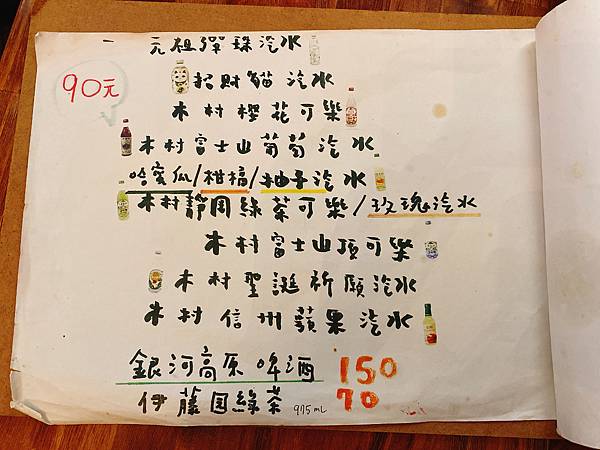 元祖彈珠汽水
90元
招財貓汽水
木村櫻花可樂
木村富士山葡萄汽水
哈蜜瓜/柑橘/柚子汽水
木村靜岡綠茶可樂/玫瑰汽水
木村富士山頂可樂
木村聖誕祈願汽水
木村信州蘋果汽水
銀河高原啤酒 150
伊藤園綠茶 975ml 70